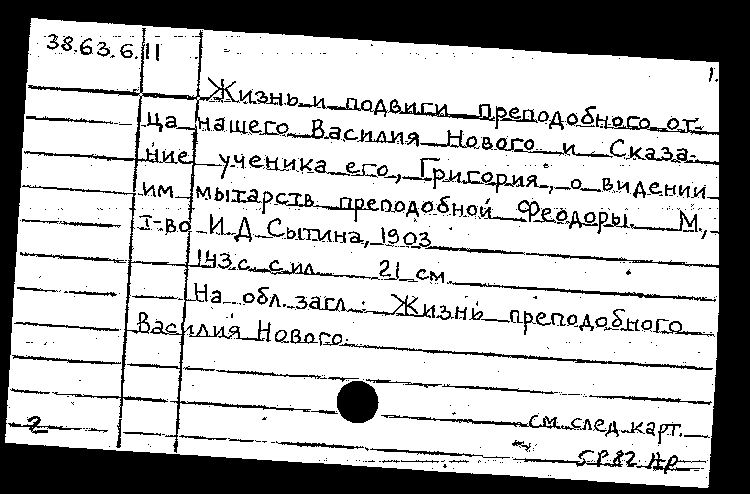 38.63.6.11
1.
Жизнь и подвиги преподобного от-
ца нашего Василия Нового и Сказа-
ние ученика его, Григория, о видении
им мытарств преподобной Феодоры. М.,
т-во И.Д Сытина, 1903
143с. с ил. 21 см.
На обл. загл.: Жизнь преподобного
Василия Нового.
см. след. карт.
2